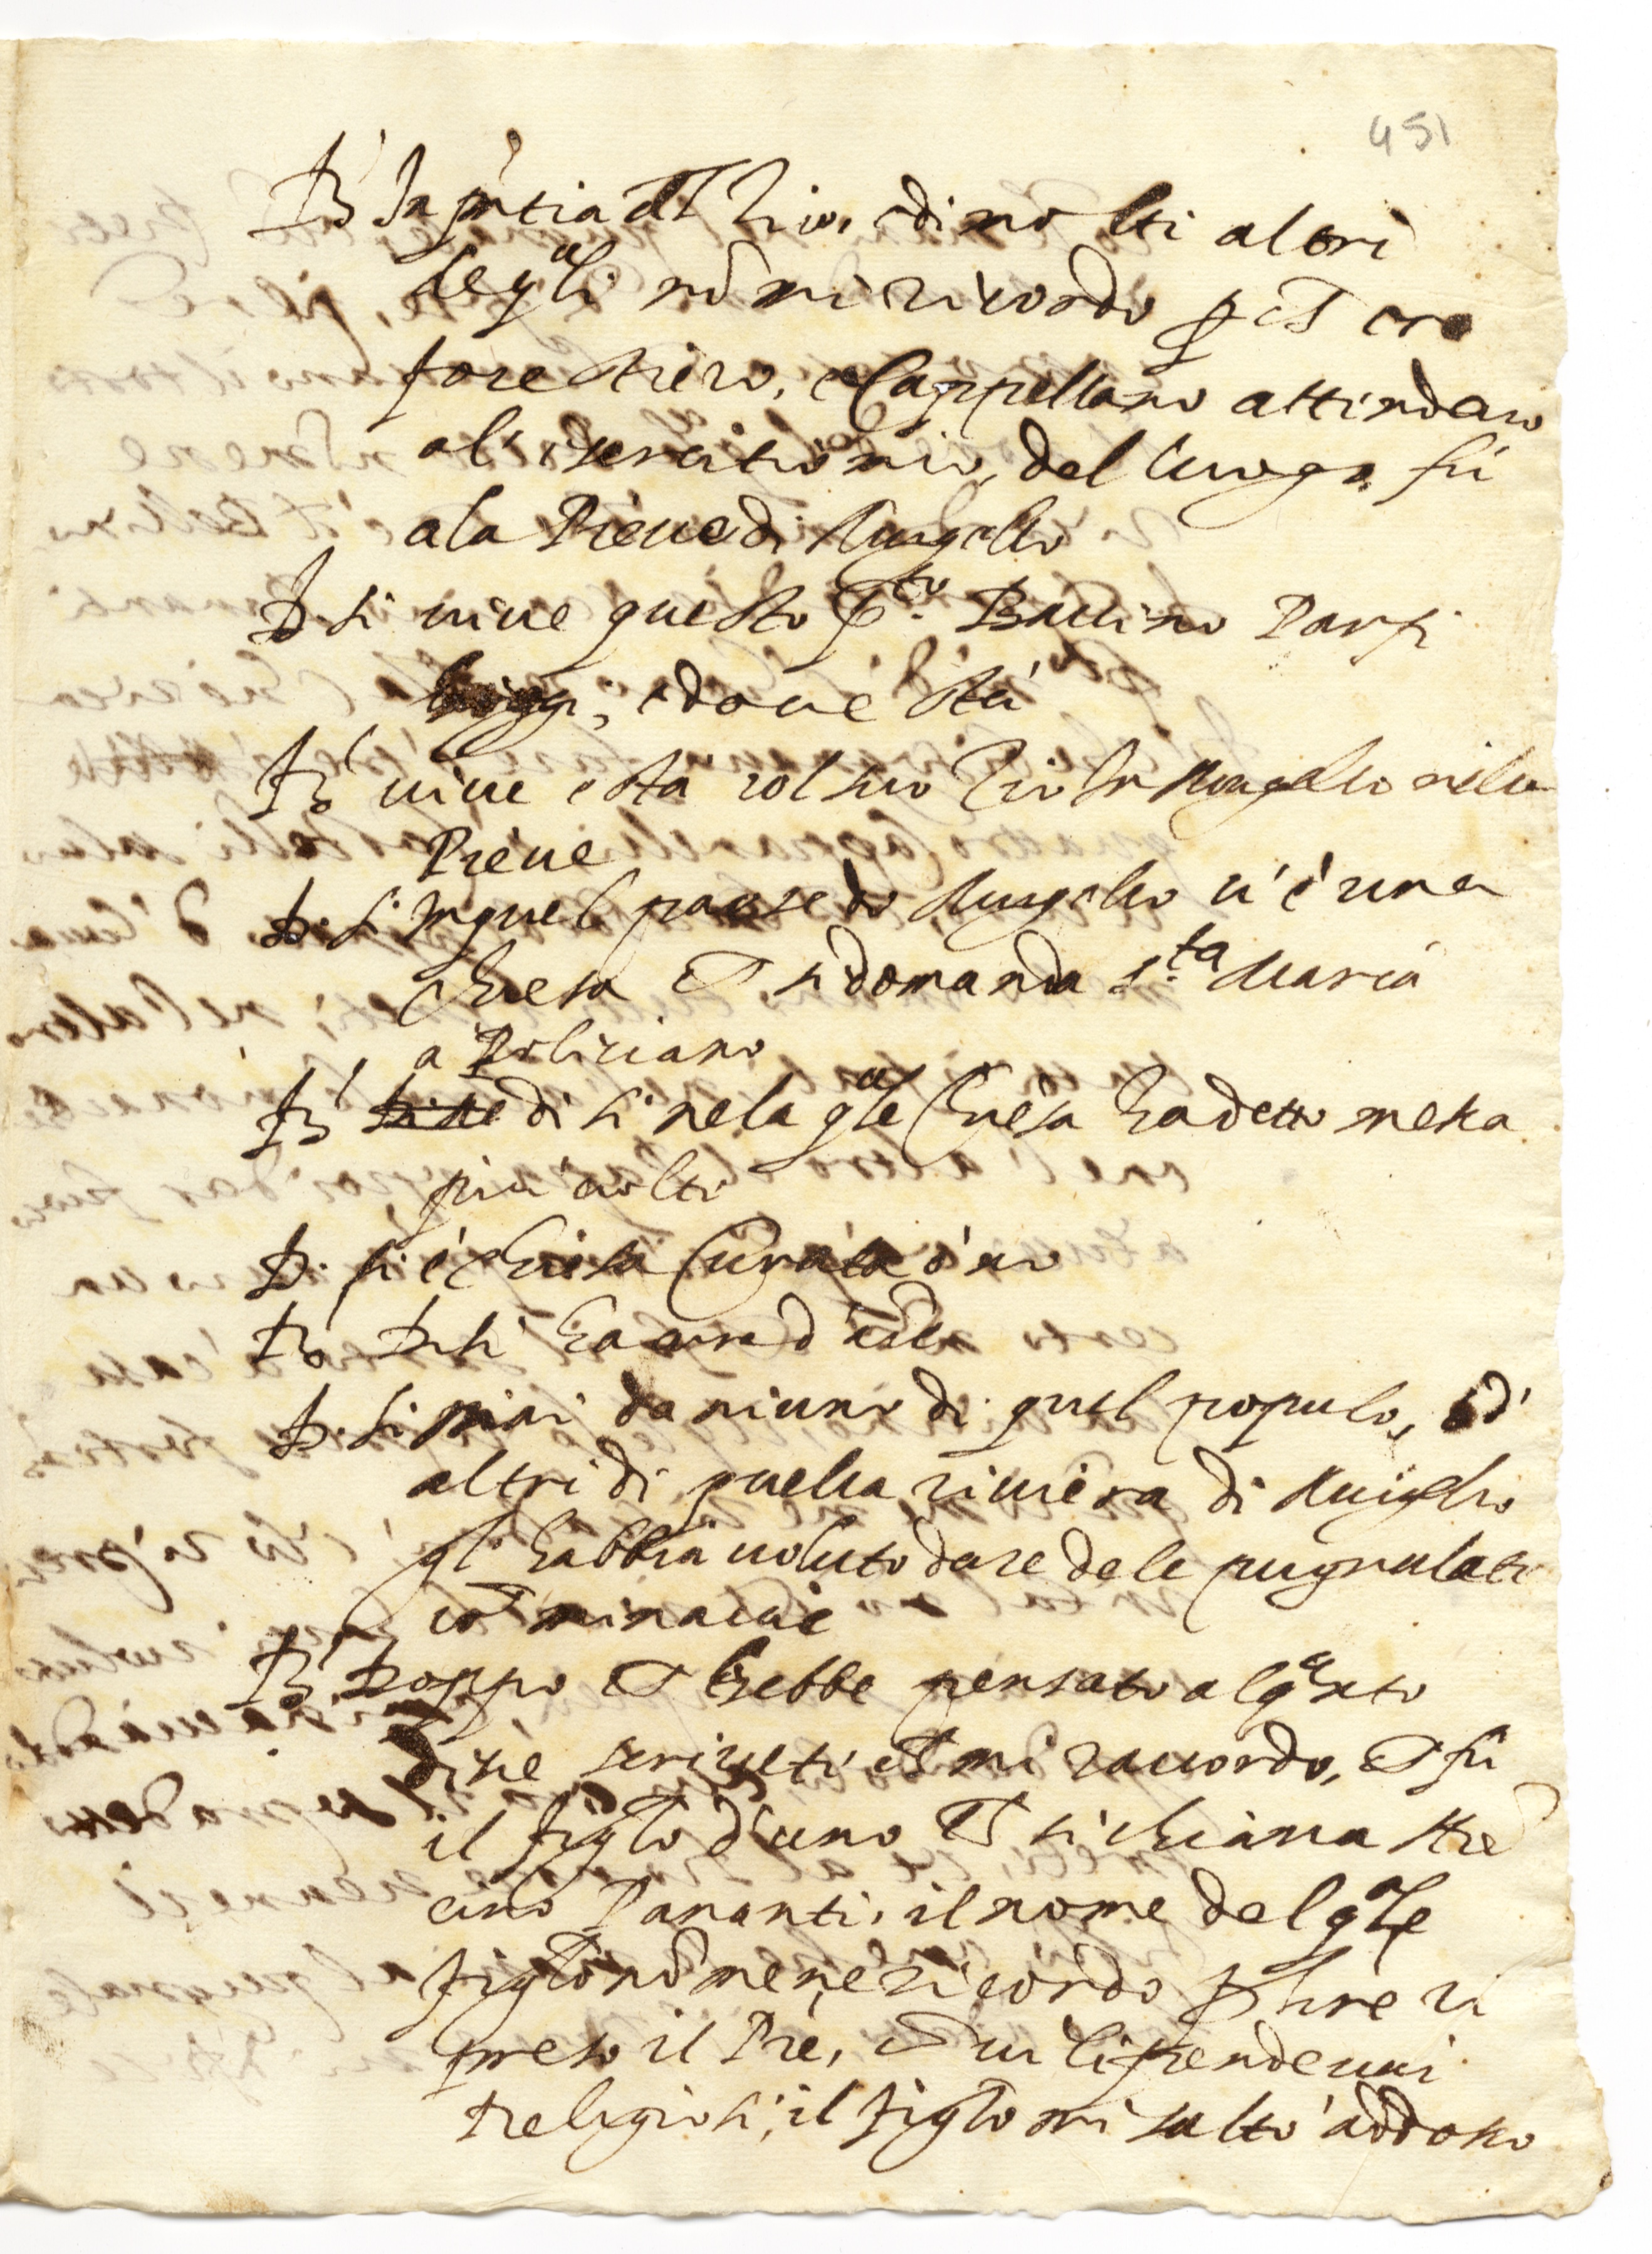 451
R. In prñtia del Zio, e di molti altri
de quali nõ mi ricordo p che ero
forestiero, e Cappellano attendevo
al esercitio mio, del luogo fù
ala Pieve di Mugello
D. si vive questo Baccino Parsi
e dove stà
R. vive e sta col suo Zio in Mugello nela
Pieve
D. si In quel paese di Mugello v'è una
Chiesa che si domanda S.ta Maria
a Puliciano
R. di si nela qle Chiesa ha detto messa
più volti
D. si è Chiesa Curata ò no
R. di si
D. si mai da niuno di quel populo, ò d'
altri di quella riviera di Mugello
gl' habbia voluto dare dele pugnalate
cõ minaccie
R. Doppo che hebbe pensato alquto
dise scriveti che mi racordo, che fù
il figlo d'uno che si chiama
Pananti, il nome del qle
figlo nõ me ne ricordo p
preso il Pre, che vi
religiosi, il figlo mi saltò addosso